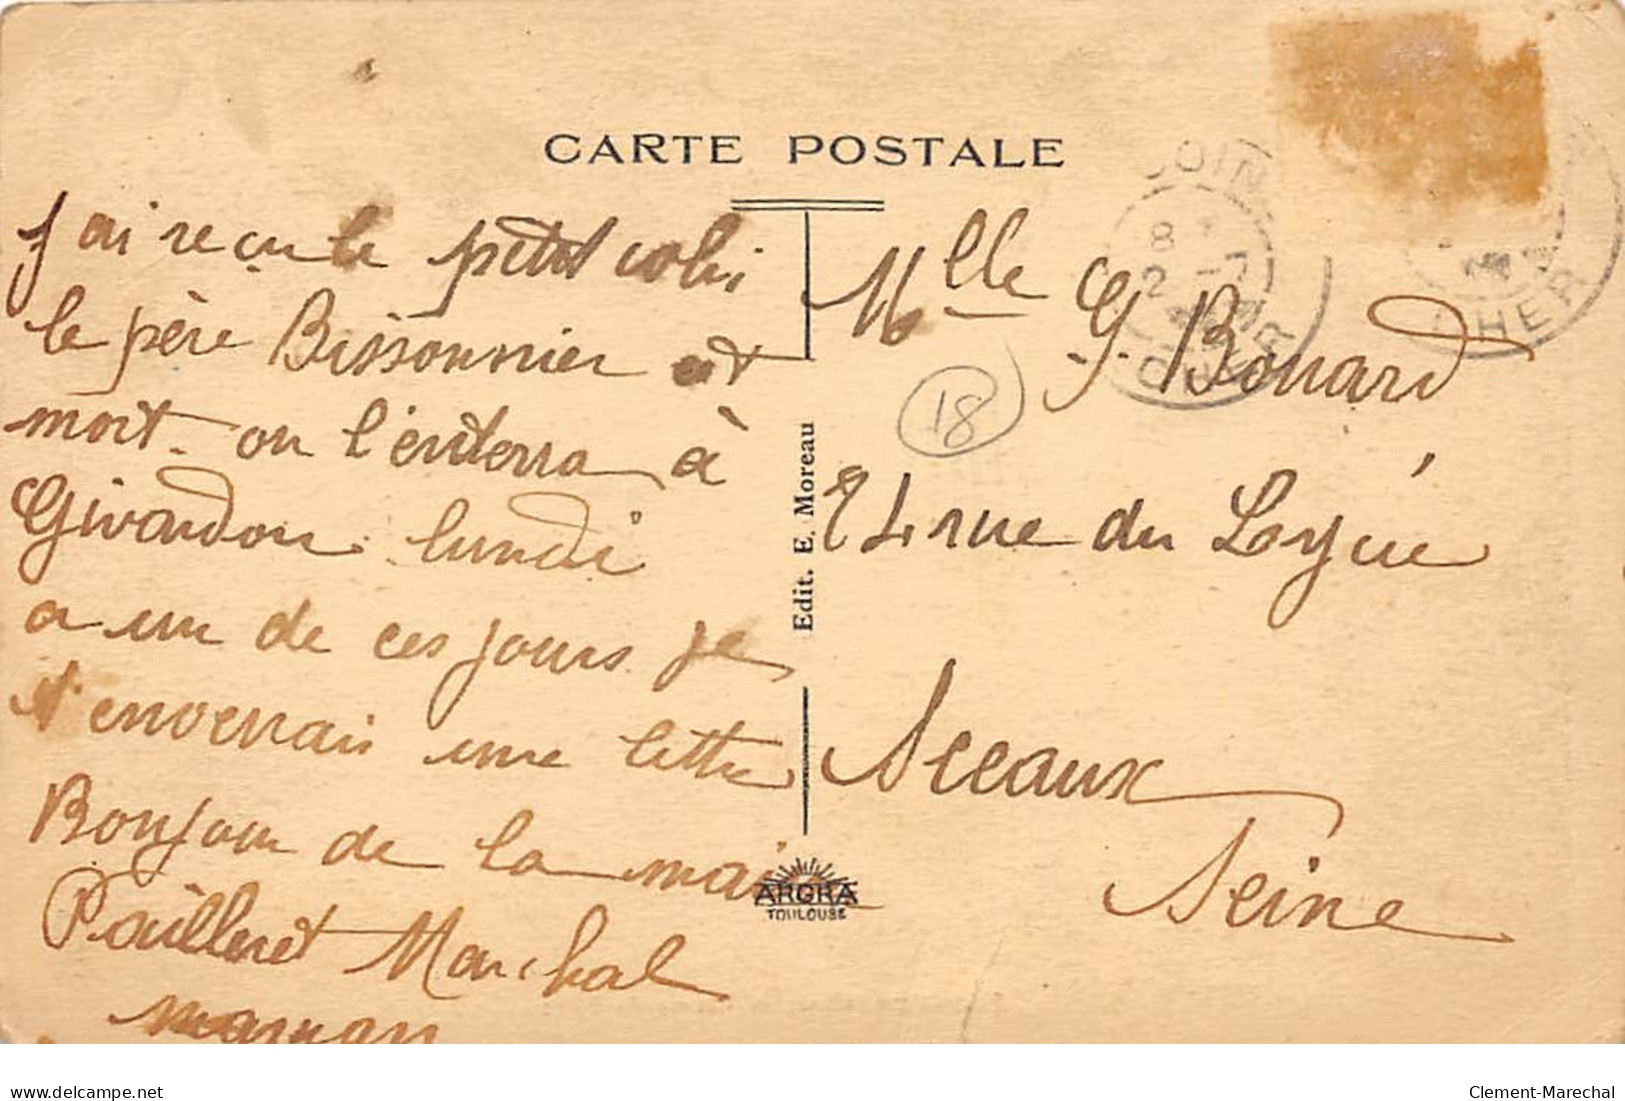 CARTE POSTALE
J'ai reçu le petit colis
le père Bissonnier est
mort on l'enterra à
Givardon lundi
a un de ces jours je
t'enverrais une lettre
Bonjour de la mai
Pailleret Marchal
maman
Mlle G. Bouard
24 rue du Lycée
Sceaux
Seine
18
Edit. E. Moreau
ARGRA
TOULOUSE
OIN
8
2 -7
CHER
CHER
delcampe.net
Clement-Marechal